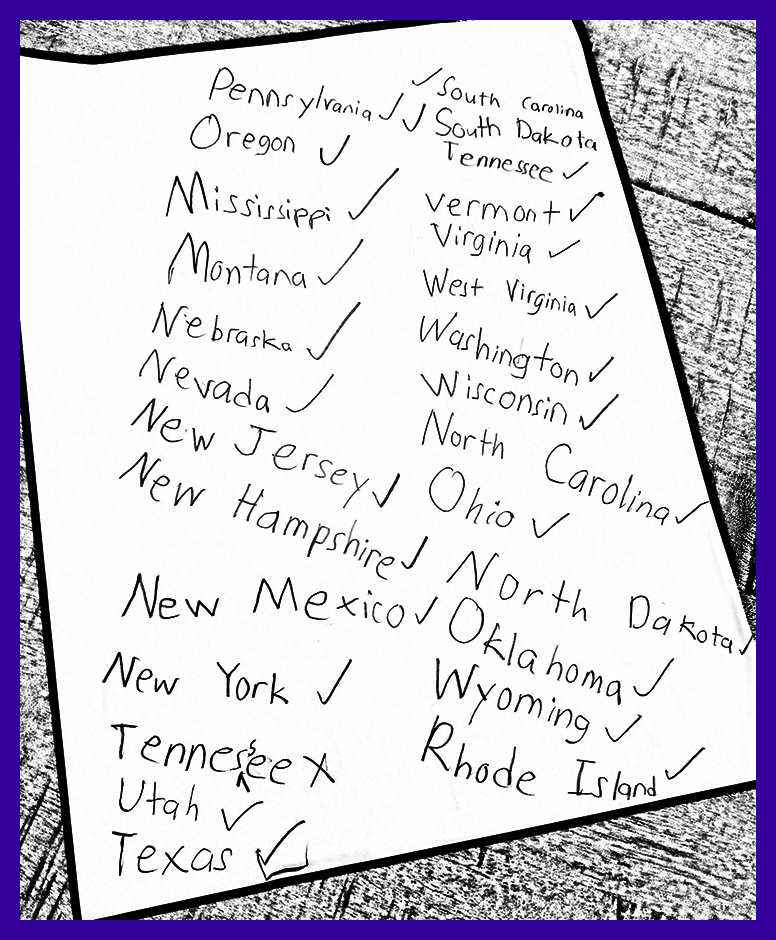 Pennsylvania ✓
Oregon ✓
Mississippi ✓
Montana ✓
Nebraska ✓
Nevada ✓
New Jersey ✓
New Hampshire ✓
New Mexico ✓
New York ✓
Tennesee s X
Utah ✓
Texas ✓
✓ South Carolina
✓ South Dakota
Tennessee ✓
Vermont ✓
Virginia ✓
West Virginia ✓
Washington ✓
Wisconsin ✓
North Carolina ✓
Ohio ✓
North Dakota ✓
Oklahoma ✓
Wyoming ✓
Rhode Island ✓